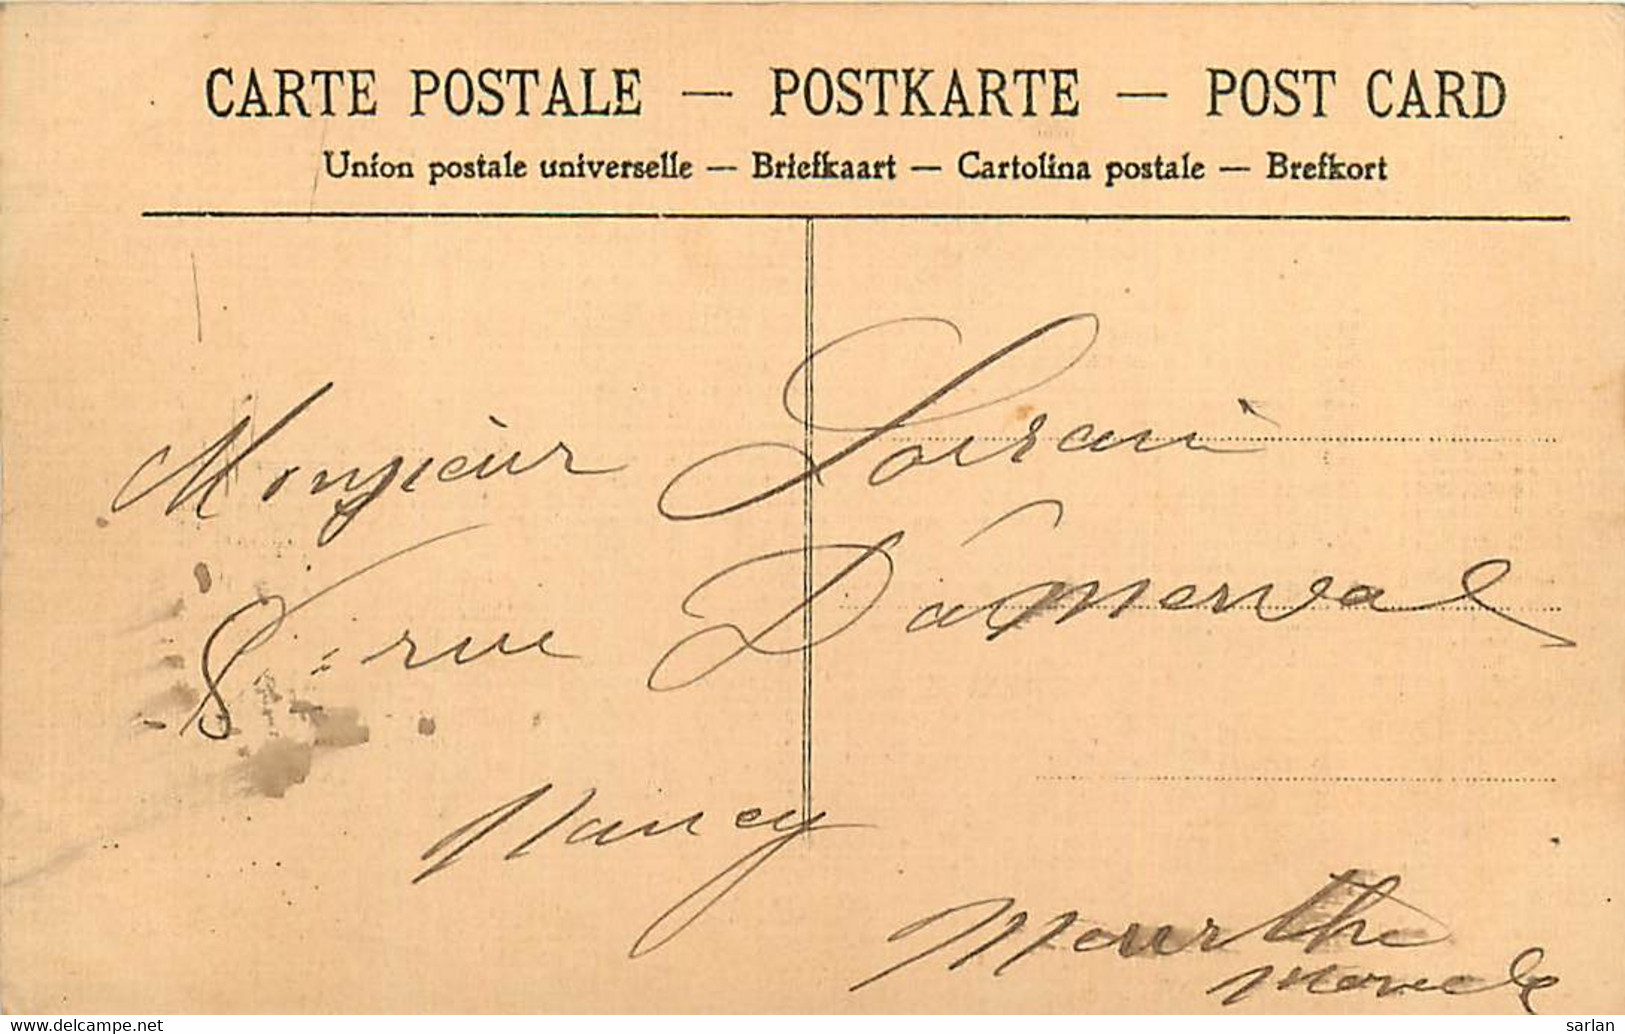 CARTE POSTALE — POSTKARTE — POST CARD
Union postale universelle — Briefkaart — Cartolina postale — Brefkort
Monsieur Lorain
8 rue Damerval
Nancy
Meurthe
Moselle
www.delcampe.net
Sarlan